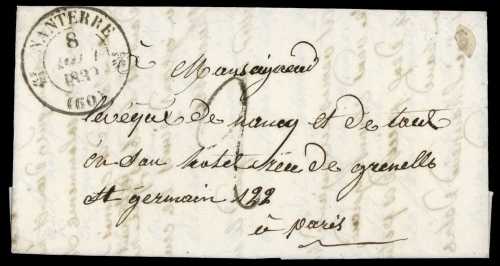 NANTERRE
8
(60)
à Monseigneur
l'evéque de nancy et de toul
en son hotel rue de grenelle
st germain 122
à paris
2